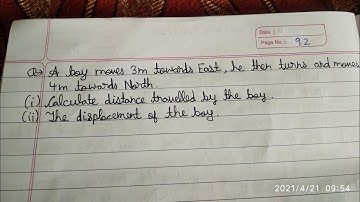 Date :
Page No.: 92
Q→ A boy moves 3m towards East, he then turns and moves
4m towards North.
(i) Calculate distance travelled by the boy.
(ii) The displacement of the boy.
2021/4/21 09:54